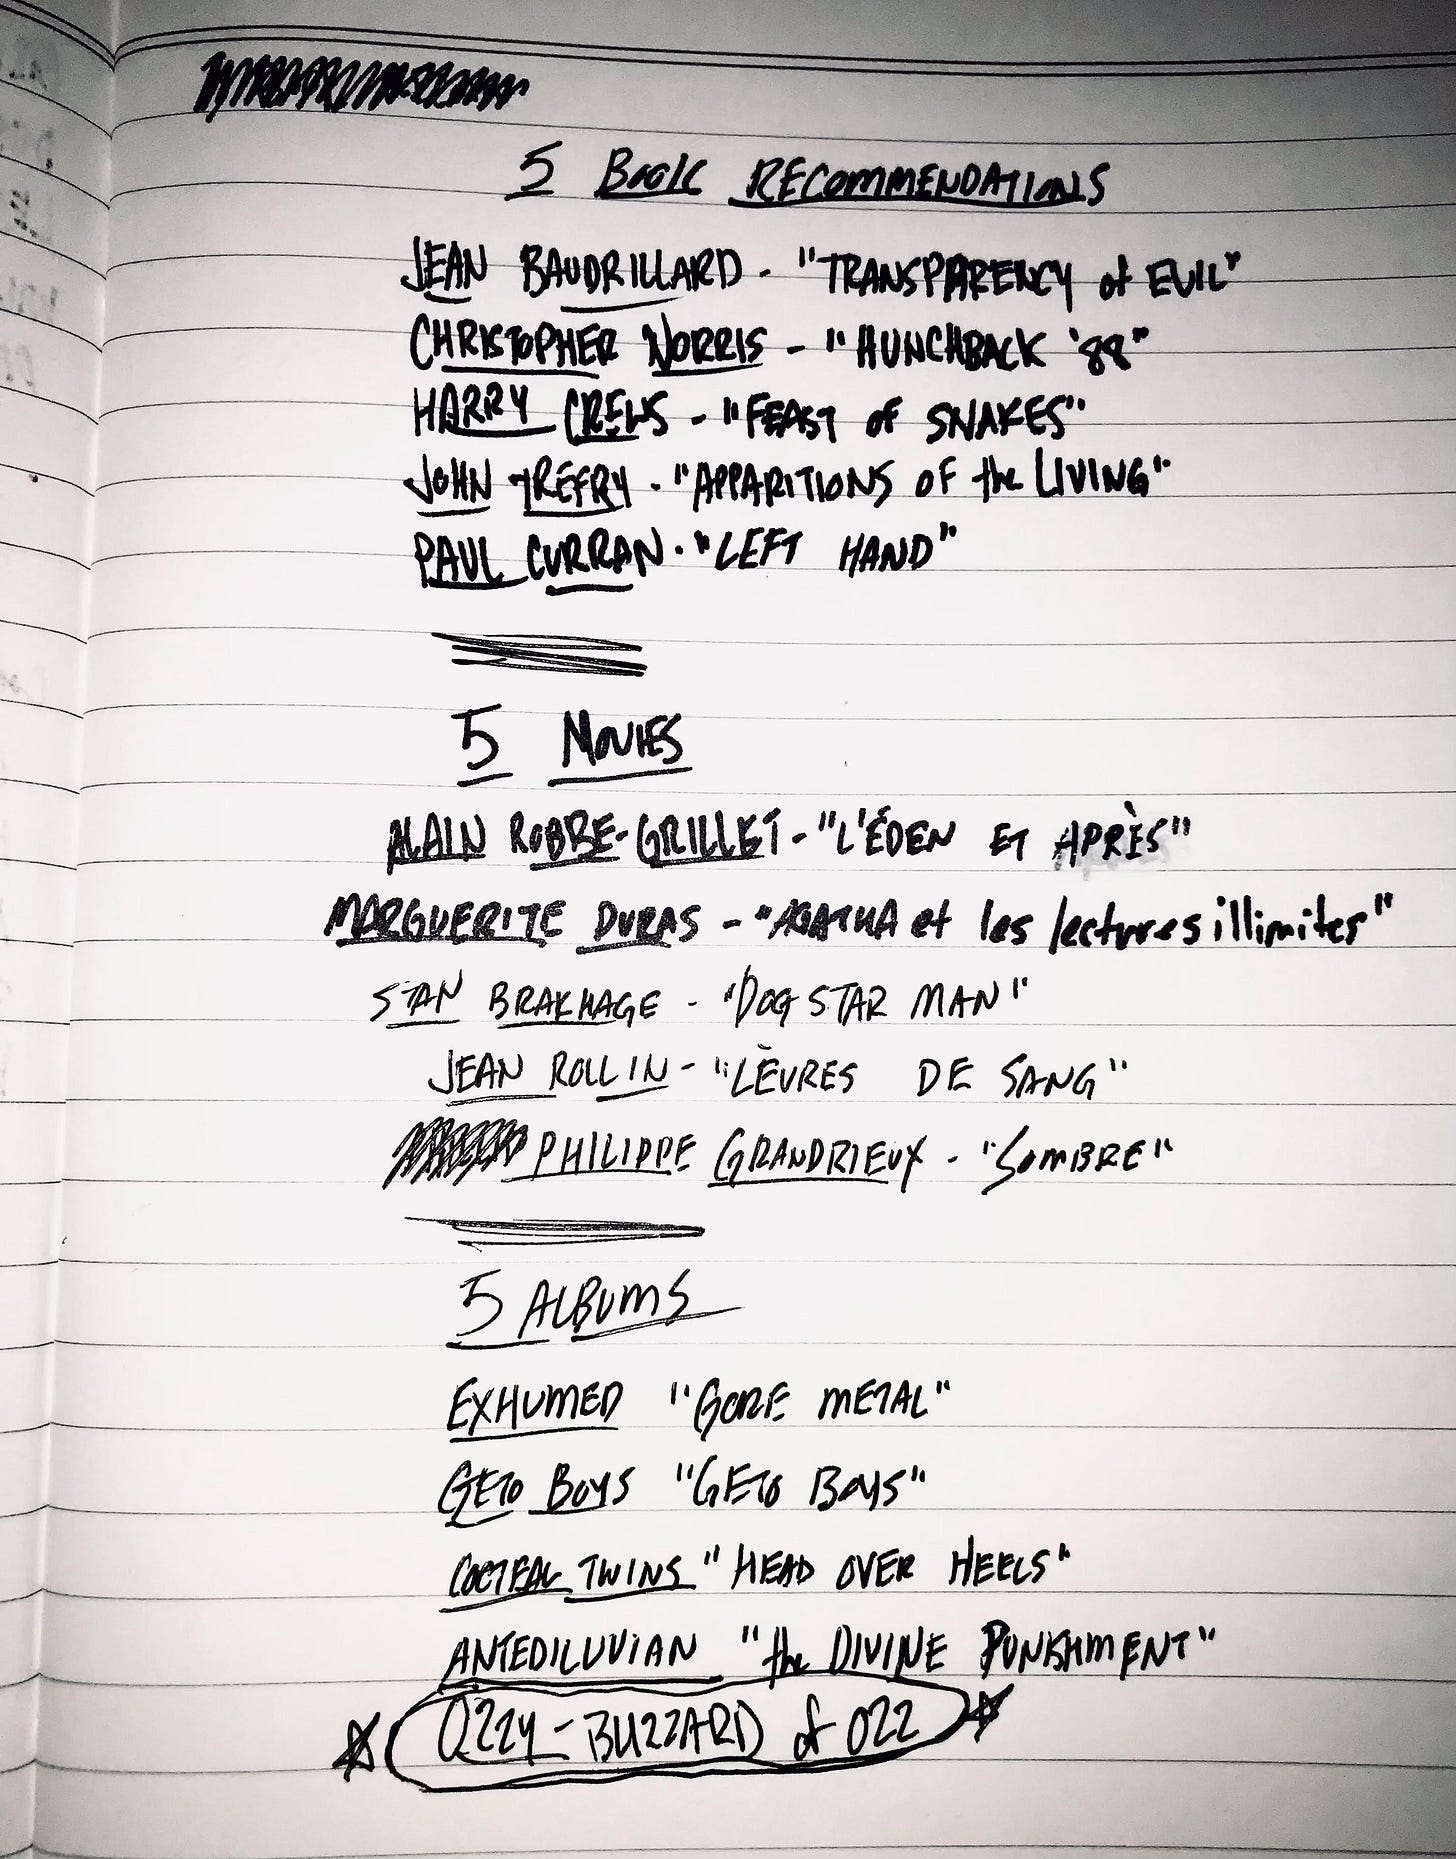 5 Book RECOMMENDATIONS
JEAN BAUDRILLARD - "TRANSPARENCY of EVIL"
CHRISTOPHER NORRIS - "HUNCHBACK '88"
HARRY CREWS - "FEAST of SNAKES"
JOHN TREFRY - "APPARITIONS OF the LIVING"
PAUL CURRAN - "LEFT HAND"
5 MOVIES
ALAIN ROBBE-GRILLET - "L'ÉDEN ET APRÈS"
MARGUERITE DURAS - "AGATHA et les lectures illimites"
STAN BRAKHAGE - "DOG STAR MAN"
JEAN ROLLIN - "LÈVRES DE SANG"
PHILIPPE GRANDRIEUX - "SOMBRE"
5 ALBUMS
EXHUMED "GORE METAL"
GETO BOYS "GETO BOYS"
COCTEAU TWINS "HEAD OVER HEELS"
ANTEDILUVIAN "the DIVINE PUNISHMENT"
OZZY - BUZZARD of OZZ